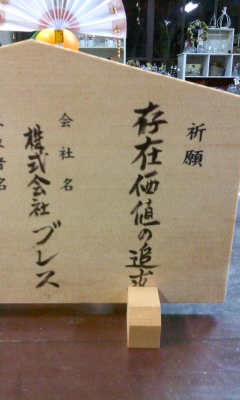 祈願
存在価値の追求
会社名
株式会社ブレス